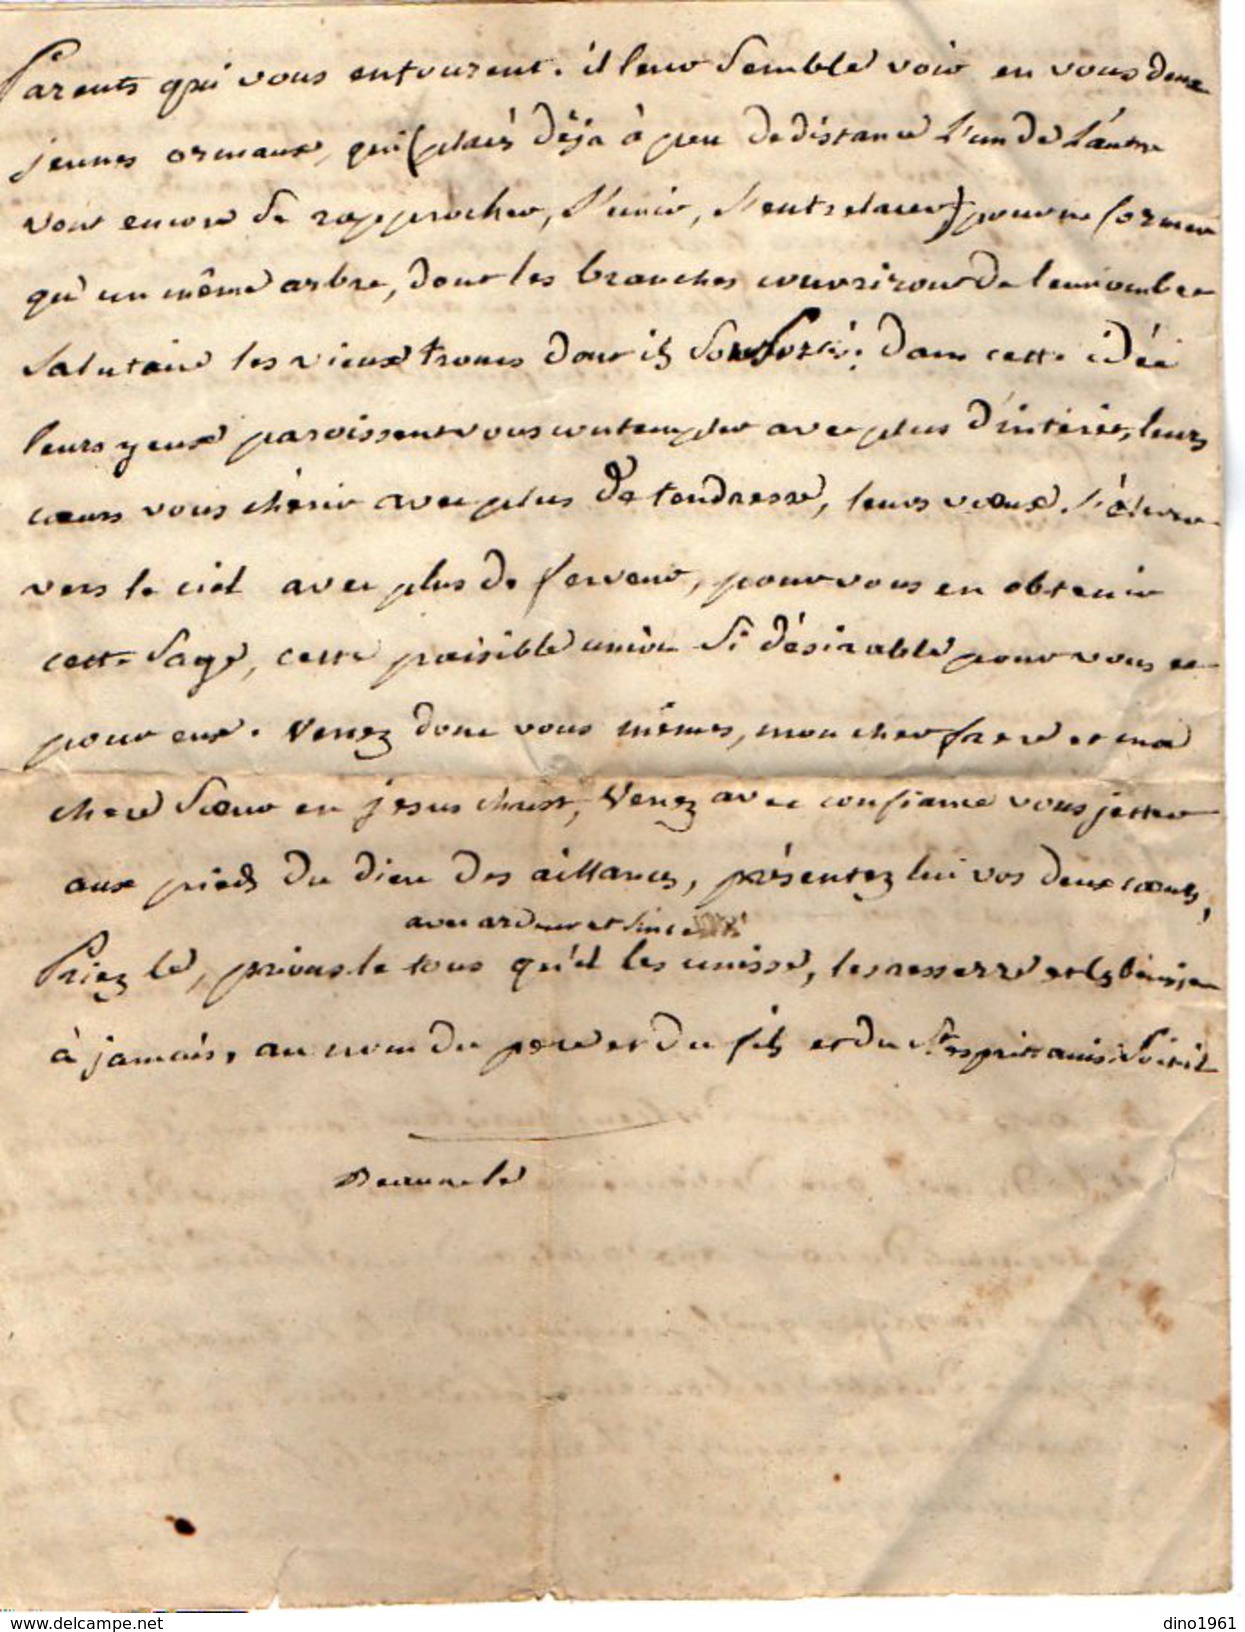 Parents qui vous entourent. il leur Semble voir en vous deux
jeunes ormaux, qui (placés déja à peu de distance l'un de l'autre
vont encore Se rapprocher, S'unir, S'entrelacer) pour ne former
qu'un même arbre, dont les branches couvriront de leur ombre
Salutaire les vieux troncs dont ils Sont Sortis. dans cette idée
leurs yeux paroissent vous contempler avec plus d'intérêt, leurs
cœurs vous chérir avec plus de tendresse, leurs vœux S'élever
vers le ciel avec plus de ferveur, pour vous en obtenir
cette Sage, cette paisible union Si désirable pour vous et
pour eux. Venez donc vous mêmes, mon cher frere et ma
chere Sœur en jesus christ, Venez avec confiance vous jetter
aux pieds du dieu des alliances, présentez lui vos deux cœurs,
avec ardeur et
Priez le, prions le tous qu'il les unisse, les resserre et les bénisse
à jamais, au nom du pere et du fils et du St esprit ainsi Soit il
Beaune le
www.delcampe.net
dino1961